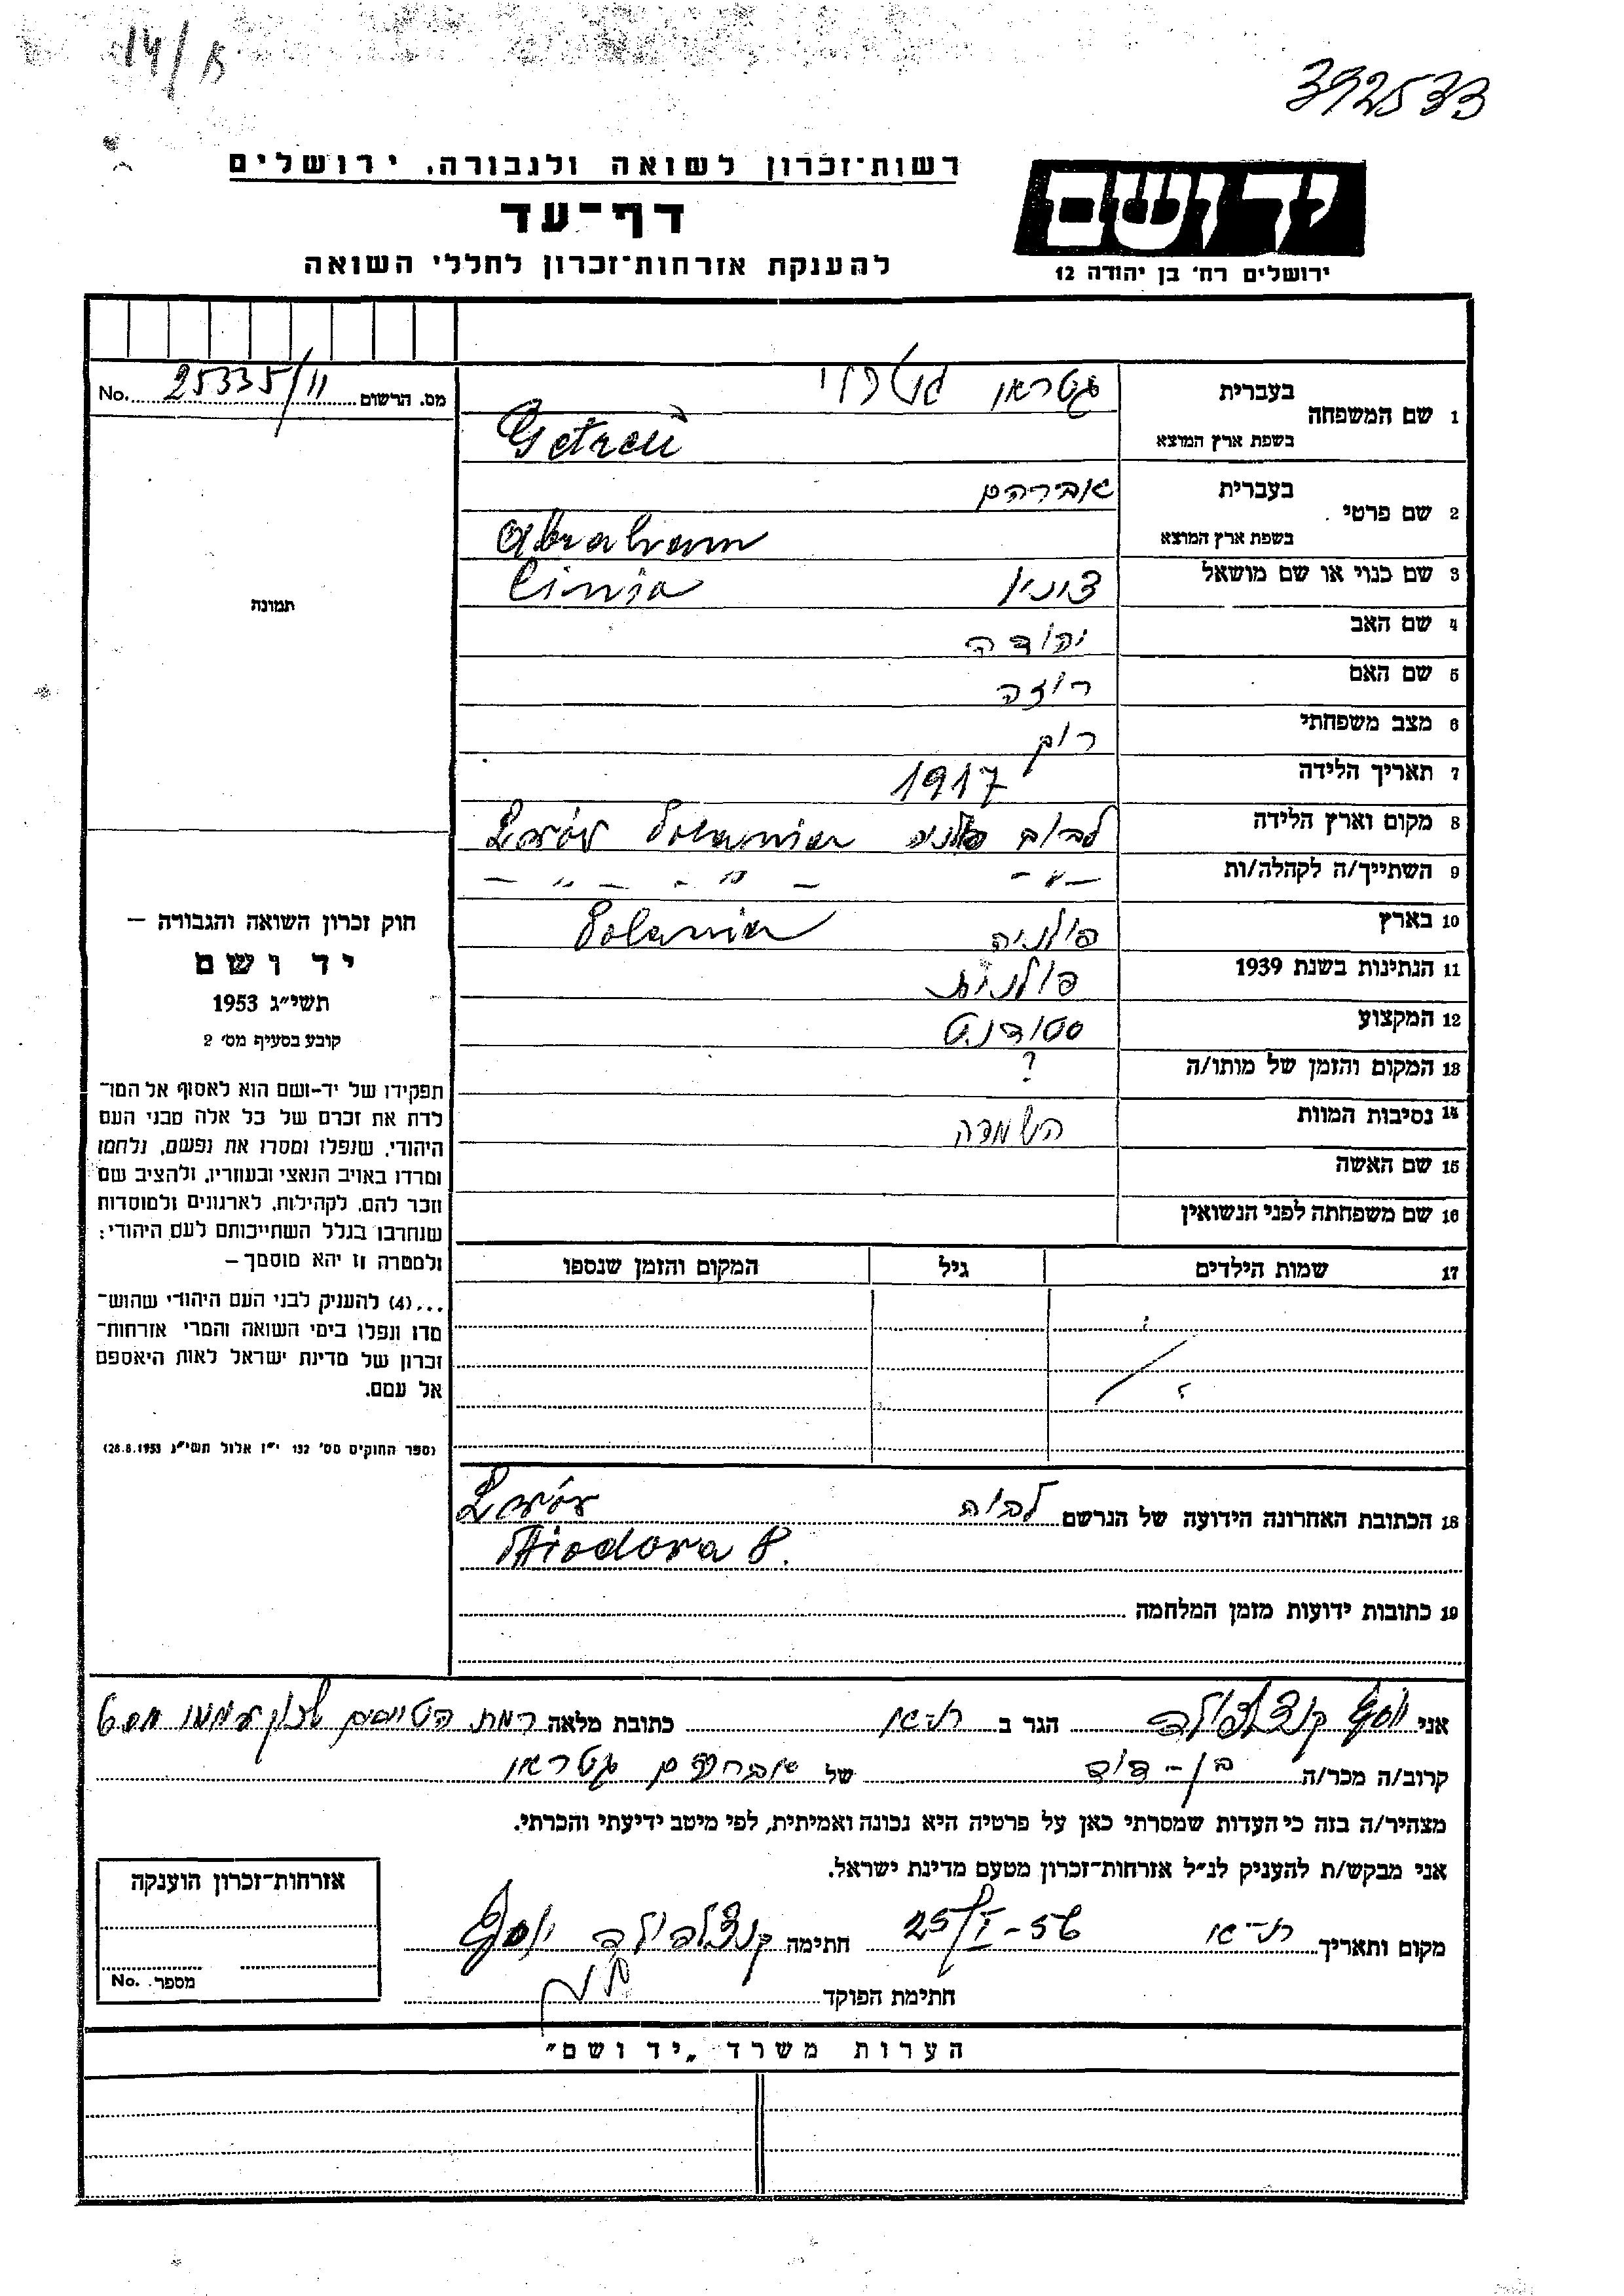 14/א
392533
יד ושם
ירושלים רח' בן יהודה 12
רשות־זכרון לשואה ולגבורה, ירושלים
דף־עד
להענקת אזרחות־זכרון לחללי השואה
מס. הרשום 25335/11 No.
1 שם המשפחה בעברית גטראו
בשפת ארץ המוצא Getreü
2 שם פרטי בעברית אברהם
בשפת ארץ המוצא Abraham
3 שם כנוי או שם מושאל צוניא Cinia
4 שם האב יהודה
5 שם האם רוזה
6 מצב משפחתי רווק
7 תאריך הלידה 1917
8 מקום וארץ הלידה לבוב פולניה Polania Lwów
9 השתייך/ה לקהלה/ות — " — — " — " —
10 בארץ פולניה Polania
11 הנתינות בשנת 1939 פולנית
12 המקצוע סטודנט
13 המקום והזמן של מותו/ה ?
14 נסיבות המוות השמדה
15 שם האשה
16 שם משפחתה לפני הנשואין
17 שמות הילדים גיל המקום והזמן שנספו
18 הכתובת האחרונה הידועה של הנרשם לבוב Lwów
Miodova 8.
19 כתובות ידועות מזמן המלחמה
תמונה
חוק זכרון השואה והגבורה —
יד ושם
תשי״ג 1953
קובע בסעיף מס' 2
תפקידו של יד-ושם הוא לאסוף אל המו־
לדת את זכרם של כל אלה מבני העם
היהודי, שנפלו ומסרו את נפשם, נלחמו
ומרדו באויב הנאצי ובעוזריו, ולהציב שם
וזכר להם, לקהילות, לארגונים ולמוסדות
שנחרבו בגלל השתייכותם לעם היהודי;
ולמטרה זו יהא מוסמך —
...(4) להעניק לבני העם היהודי שהוש־
מדו ונפלו בימי השואה והמרי אזרחות־
זכרון של מדינת ישראל לאות היאספם
אל עמם.
(ספר החוקים מס' 132 י״ז אלול תשי״ג 28.8.1953)
אני יוסף הגר ב ת-א כתובת מלאה רמת הטייסים
קרוב/ה מכר/ה בן-דוד של אברהם גטראו
מצהיר/ה בזה כי העדות שמסרתי כאן על פרטיה היא נכונה ואמיתית, לפי מיטב ידיעתי והכרתי.
אני מבקש/ת להעניק לנ״ל אזרחות־זכרון מטעם מדינת ישראל.
מקום ותאריך ת-א 25/I-56 חתימה יוסף
חתימת הפוקד
אזרחות־זכרון הוענקה
מספר No.
הערות משרד „יד ושם״